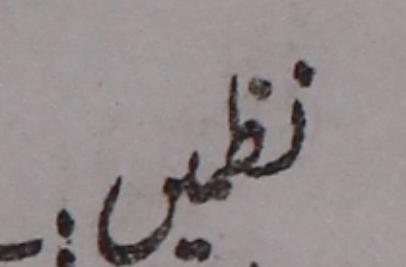 نظمیں